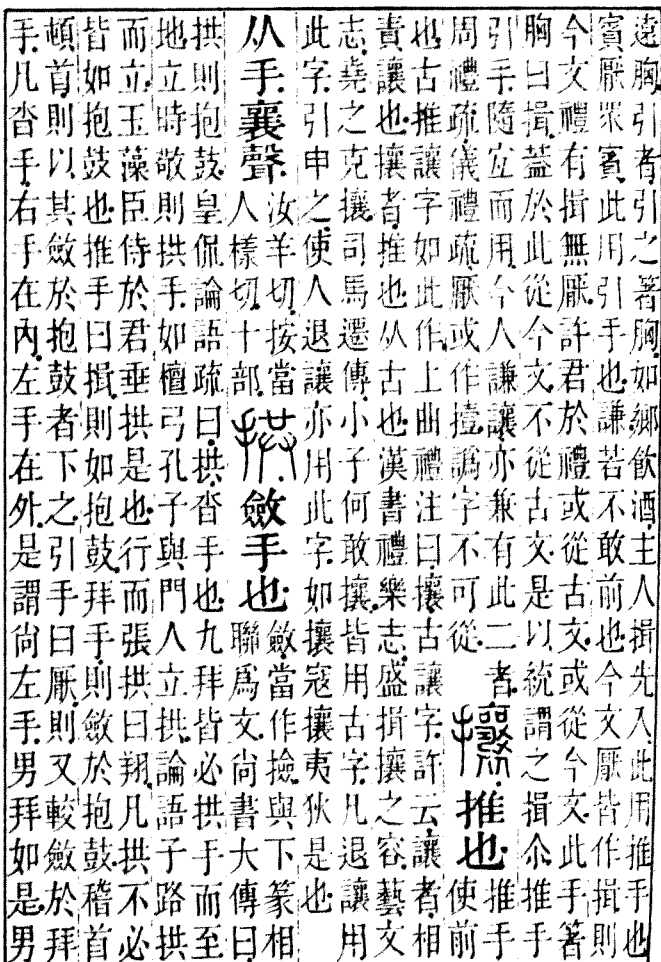 遠胸引者引之箸胸如鄉飲酒主人揖先入此用推手也
賓厭眾賓此用引手也謙若不敢前也今文厭皆作揖則
今文禮有揖無厭許君於禮或從古文或從今文此手箸
胸曰揖葢於此從今文不從古文是以統謂之揖尒推手
引手隨宐而用今人謙讓亦兼有此二者
周禮疏儀禮疏厭或作撎譌字不可從
攘推也
推手
使前
也古推讓字如此作上曲禮注曰攘古讓字許云讓者相
責讓也攘者推也从古也漢書禮樂志盛揖攘之容藝文
志堯之克攘司馬遷傳小子何敢攘皆用古字凡退讓用
此字引申之使人退讓亦用此字如攘寇攘夷狄是也
从手襄聲
汝羊切按當
人樣切十部
拱斂手也
斂當作撿與下篆相
聯爲文尚書大傳曰
拱則抱鼓皇侃論語疏曰拱沓手也九拜皆必拱手而至
地立時敬則拱手如檀弓孔子與門人立拱論語子路拱
而立玉藻臣侍於君垂拱是也行而張拱曰翔凡拱不必
皆如抱鼓也推手曰揖則如抱鼓拜手則斂於抱鼓稽首
頓首則以其斂於抱鼓者下之引手曰厭則又較斂於拜
手凡沓手右手在內左手在外是謂尚左手男拜如是男